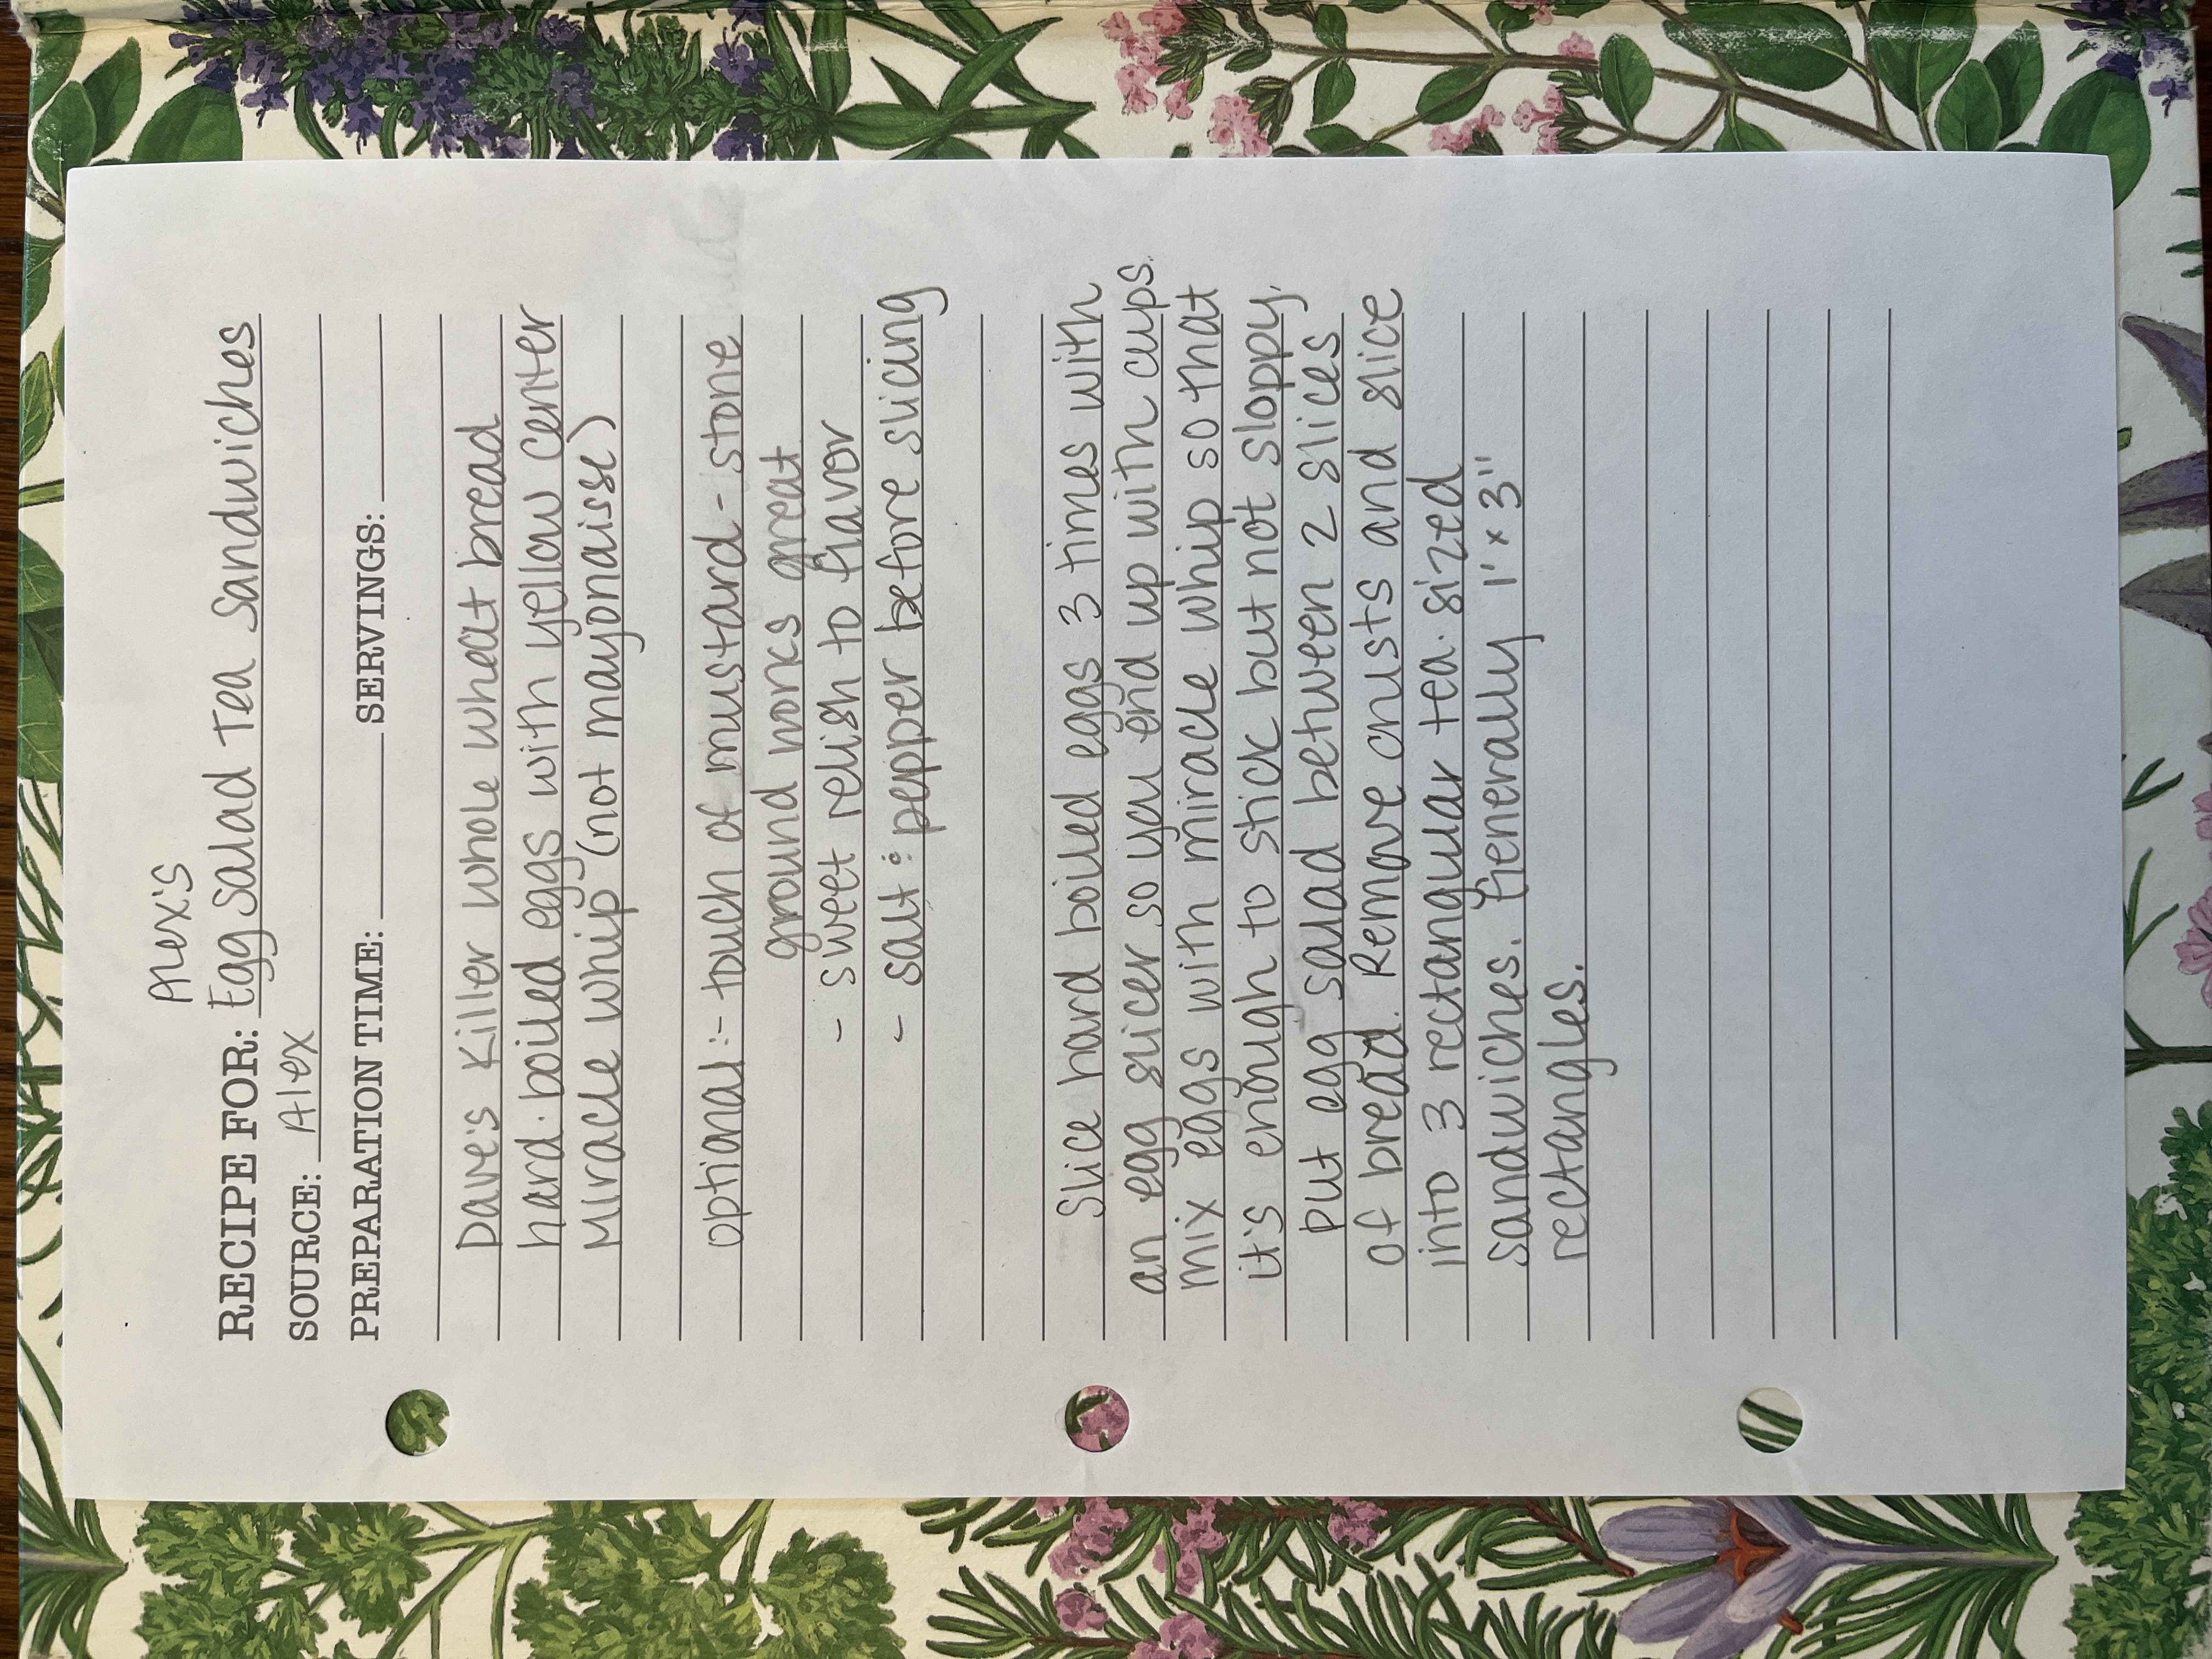 Alex's
RECIPE FOR: Egg Salad Tea Sandwiches
SOURCE: Alex
PREPARATION TIME: SERVINGS:
Dave's Killer whole wheat bread
hard-boiled eggs with yellow center
Miracle whip (not mayonaisse)
optional:- touch of mustard - stone
ground works great
- sweet relish to flavor
- salt & pepper before slicing
Slice hard boiled eggs 3 times with
an egg slicer so you end up with cups.
mix eggs with miracle whip so that
it's enough to stick but not sloppy.
Put egg salad between 2 slices
of bread. Remove crusts and slice
into 3 rectangular tea-sized
sandwiches. Generally 1' x 3"
rectangles.